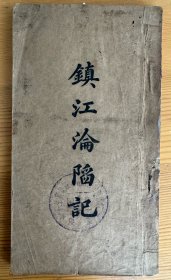 鎮江淪陷記